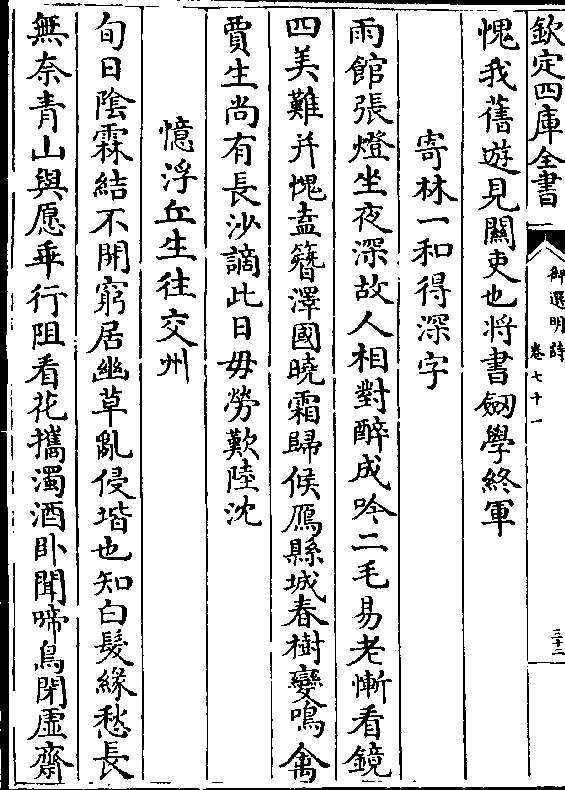 欽定四庫全書
御選明詩
卷七十一
三十二
愧我舊遊見關吏也將書劒學終軍
寄林一和得深字
雨館張燈坐夜深故人相對醉成吟二毛易老慚看鏡
四美難并愧盍簪澤國曉霜歸候鴈縣城春樹變鳴禽
賈生尚有長沙謫此日毋勞歎陸沈
憶浮丘生往交州
旬日陰霖結不開窮居幽草亂侵堦也知白髮緣愁長
無奈青山與愿乖行阻看花攜濁酒卧聞啼鳥閉虛齋